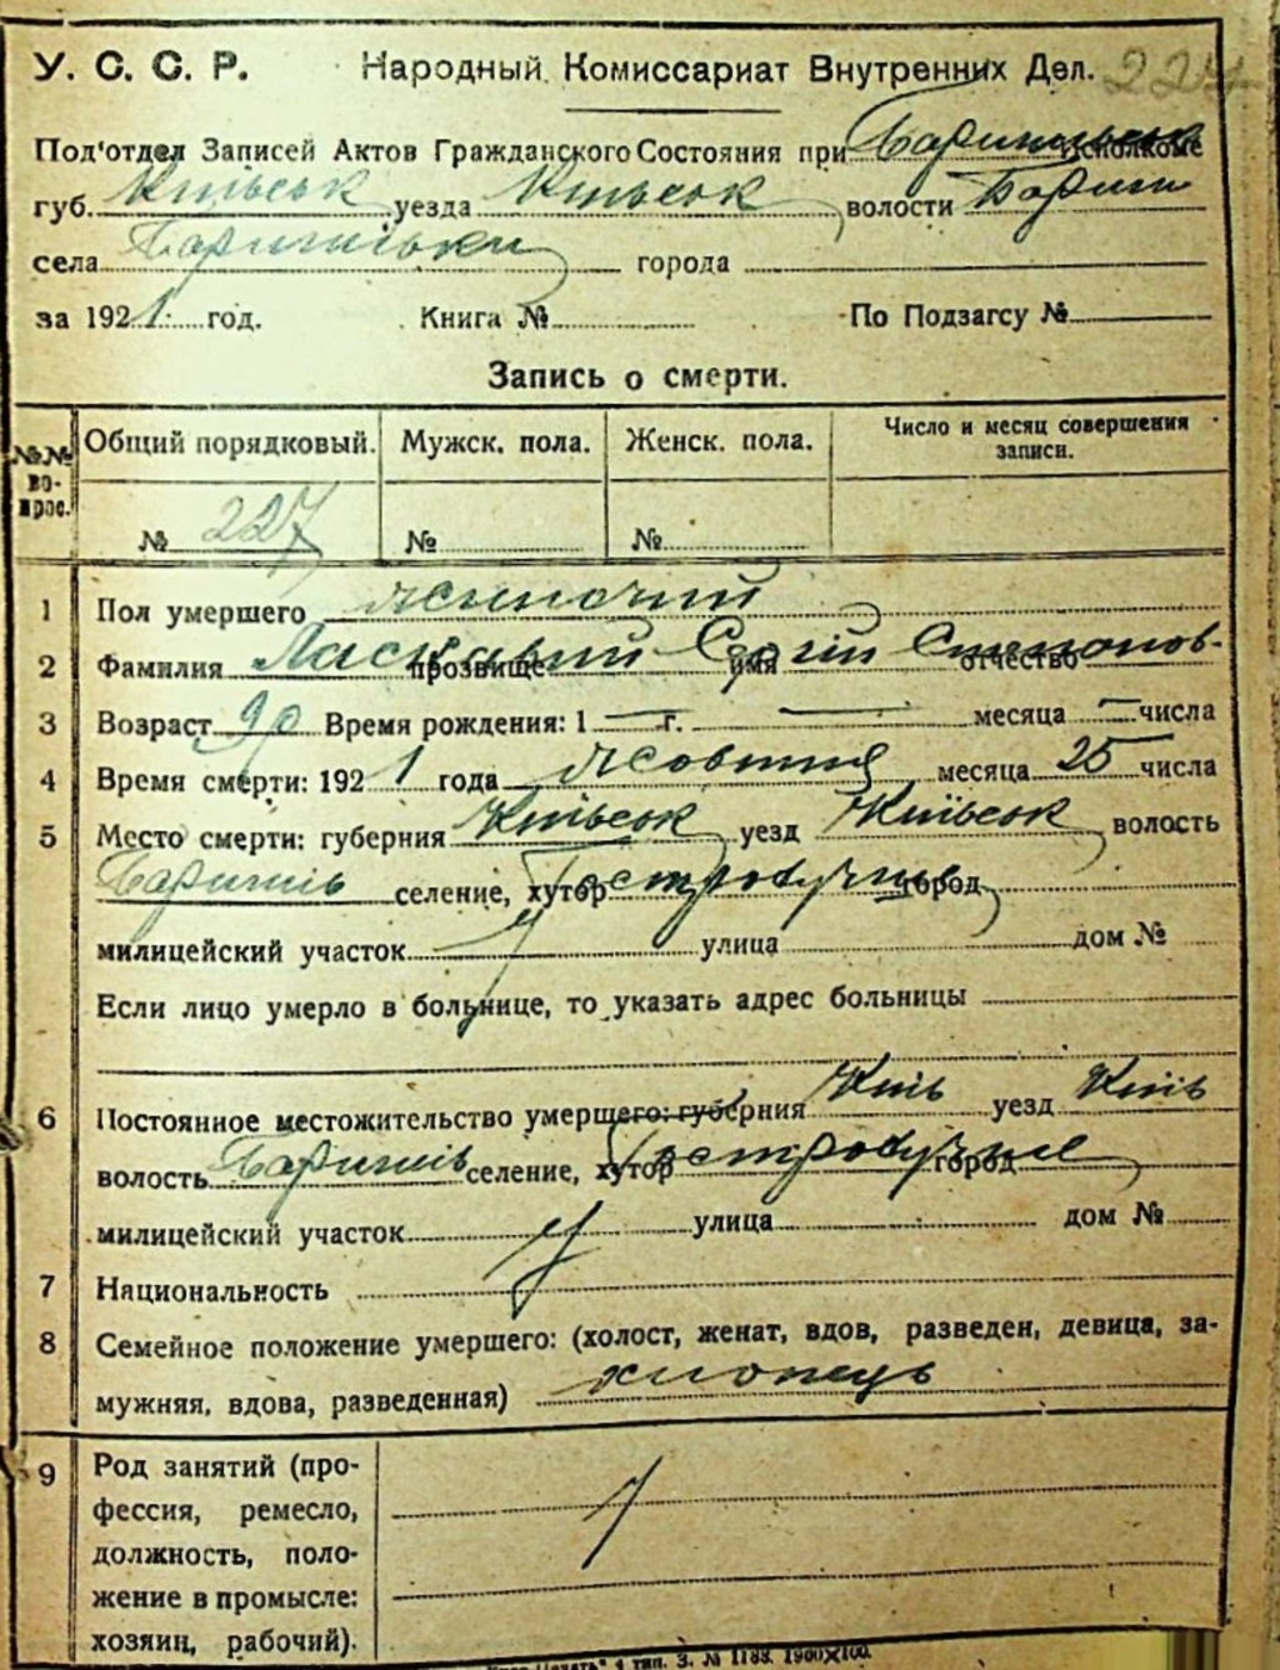 У. С. С. Р. Народный Комиссариат Внутренних Дел. 227
Под'отдел Записей Актов Гражданского Состояния при Исполкоме
губ. Київськ уезда Київськ волости Бориш
села города
за 1921 год. Книга № По Подзагсу №
Запись о смерти.
№№ вопрос. Общий порядковый. Мужск. пола. Женск. пола. Число и месяц совершения записи.
№ 227 № №
1 Пол умершего
2 Фамилия Ласкавий прозвище имя Сергій отчество Степанов-
3 Возраст 90 Время рождения: 1 — г. — месяца — числа
4 Время смерти: 1921 года жовтня месяца 25 числа
5 Место смерти: губерния Київськ уезд Київськ волость
селение, хутор город
милицейский участок улица дом №
Если лицо умерло в больнице, то указать адрес больницы
6 Постоянное местожительство умершего: губерния Київ уезд Київ
волость селение, хутор город
милицейский участок улица дом №
7 Национальность
8 Семейное положение умершего: (холост, женат, вдов, разведен, девица, за-
мужняя, вдова, разведенная) хлопець
9 Род занятий (про-
фессия, ремесло,
должность, поло-
жение в промысле:
хозяин, рабочий).
тип. З. № 1188. 1900×100.